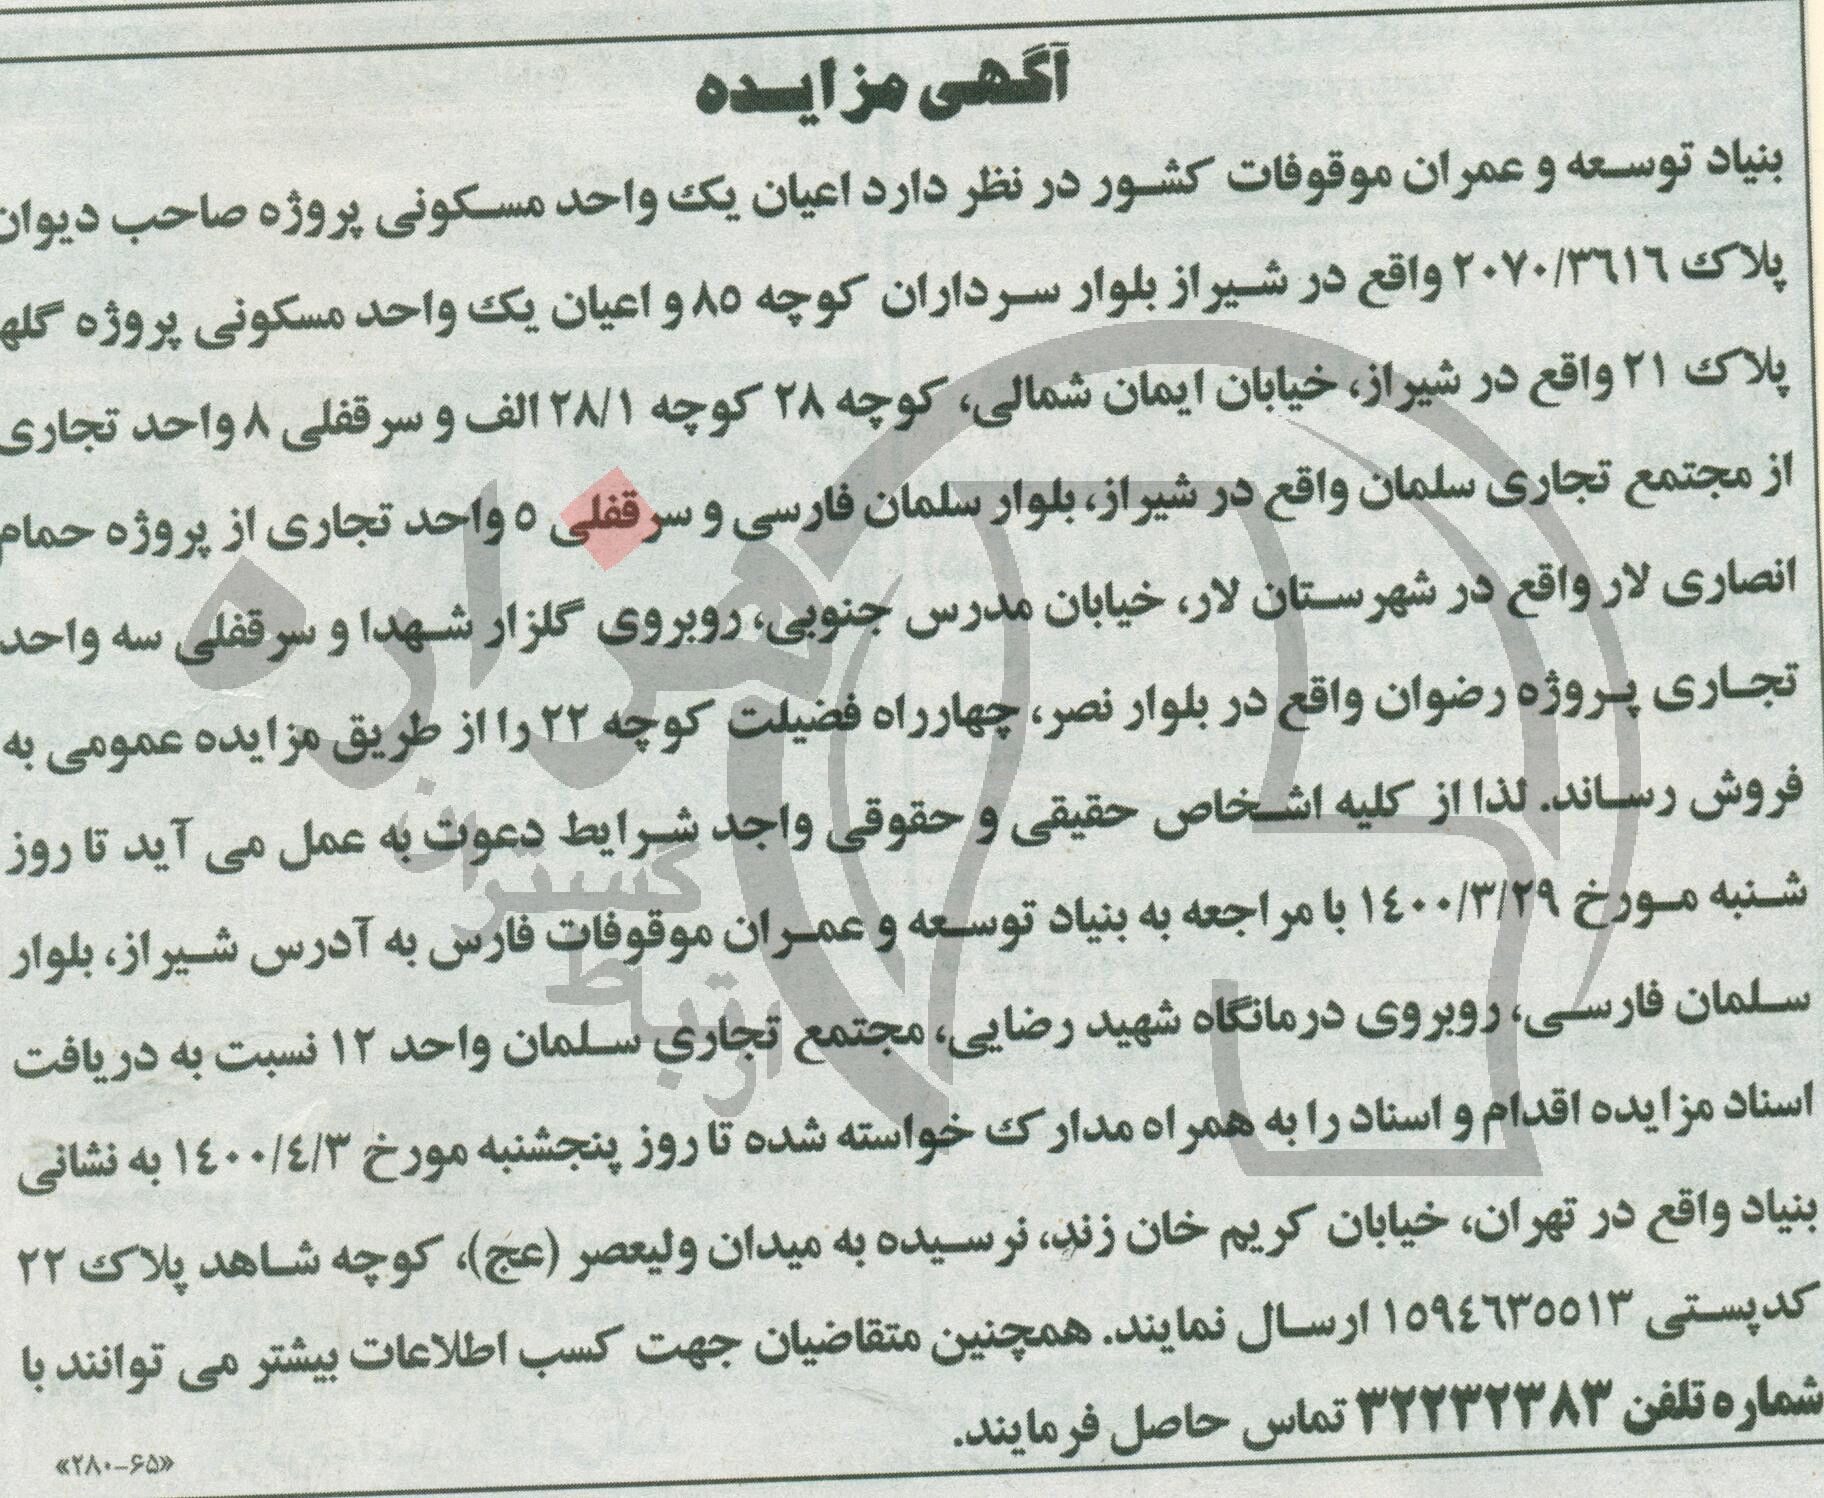 آگهی مزایده
بنیاد توسعه و عمران موقوفات کشور در نظر دارد اعیان یک واحد مسکونی پروژه صاحب دیوان
پلاک ۲۰۷۰/۳۶۱۶ واقع در شیراز بلوار سرداران کوچه ۸۵ و اعیان یک واحد مسکونی پروژه گلها
پلاک ۲۱ واقع در شیراز، خیابان ایمان شمالی، کوچه ۲۸ کوچه ۲۸/۱ الف و سرقفلی ۸ واحد تجاری
از مجتمع تجاری سلمان واقع در شیراز، بلوار سلمان فارسی و سرقفلی ۵ واحد تجاری از پروژه حمام
انصاری لار واقع در شهرستان لار، خیابان مدرس جنوبی، روبروی گلزار شهدا و سرقفلی سه واحد
تجاری پروژه رضوان واقع در بلوار نصر، چهارراه فضیلت کوچه ۲۲ را از طریق مزایده عمومی به
فروش رساند. لذا از کلیه اشخاص حقیقی و حقوقی واجد شرایط دعوت به عمل می آید تا روز
شنبه مورخ ۱۴۰۰/۳/۲۹ با مراجعه به بنیاد توسعه و عمران موقوفات فارس به آدرس شیراز، بلوار
سلمان فارسی، روبروی درمانگاه شهید رضایی، مجتمع تجاری سلمان واحد ۱۲ نسبت به دریافت
اسناد مزایده اقدام و اسناد را به همراه مدارک خواسته شده تا روز پنجشنبه مورخ ۱۴۰۰/۴/۳ به نشانی
بنیاد واقع در تهران، خیابان کریم خان زند، نرسیده به میدان ولیعصر (عج)، کوچه شاهد پلاک ۲۲
کدپستی ۱۵۹۴۶۳۵۵۱۳ ارسال نمایند. همچنین متقاضیان جهت کسب اطلاعات بیشتر می توانند با
شماره تلفن ۳۲۲۳۲۳۸۳ تماس حاصل فرمایند.
«۲۸۰-۶۵»
هزاره
گستران
ارتباط